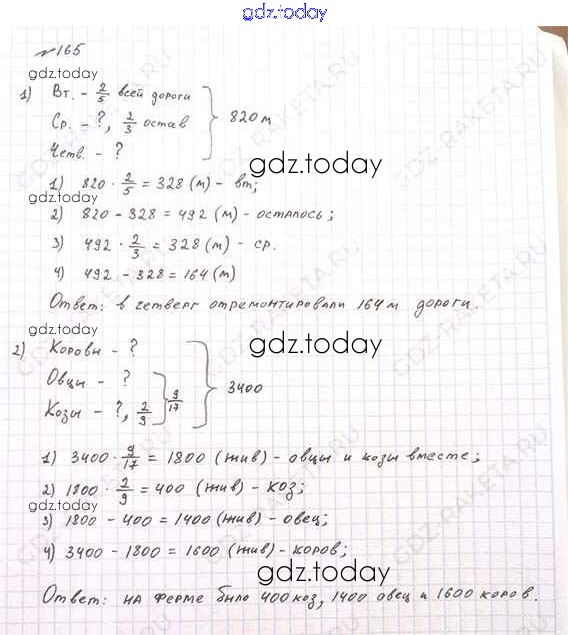 gdz.today
№165
gdz.today
1) Вт. - 2/5 всей дороги
Ср. - ?, 2/3 остав } 820 м
Четв. - ?
gdz.today
1) 820 · 2/5 = 328 (м) - вт;
gdz.today
2) 820 - 328 = 492 (м) - осталось;
3) 492 · 2/3 = 328 (м) - ср.
4) 492 - 328 = 164 (м)
Ответ: в четверг отремонтировали 164 м дороги.
gdz.today
gdz.today
2) Коровы - ?
Овцы - ? } 9/17 } 3400
Козы - ?, 2/9
1) 3400 · 9/17 = 1800 (жив) - овцы и козы вместе;
2) 1800 · 2/9 = 400 (жив) - коз;
gdz.today
3) 1800 - 400 = 1400 (жив) - овец;
4) 3400 - 1800 = 1600 (жив) - коров;
gdz.today
Ответ: на ферме было 400 коз, 1400 овец и 1600 коров.